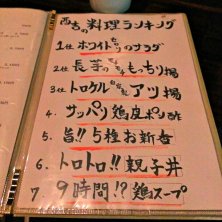 西吉の料理ランキング
1位 ホワイトのサラダ
2位 長芋のもっちり揚
3位 トロケルアツ揚
4. サッパリ鶏皮ポン酢
5. 旨!!5種お新香
6. トロトロ!!親子丼
7 9時間!?鶏スープ